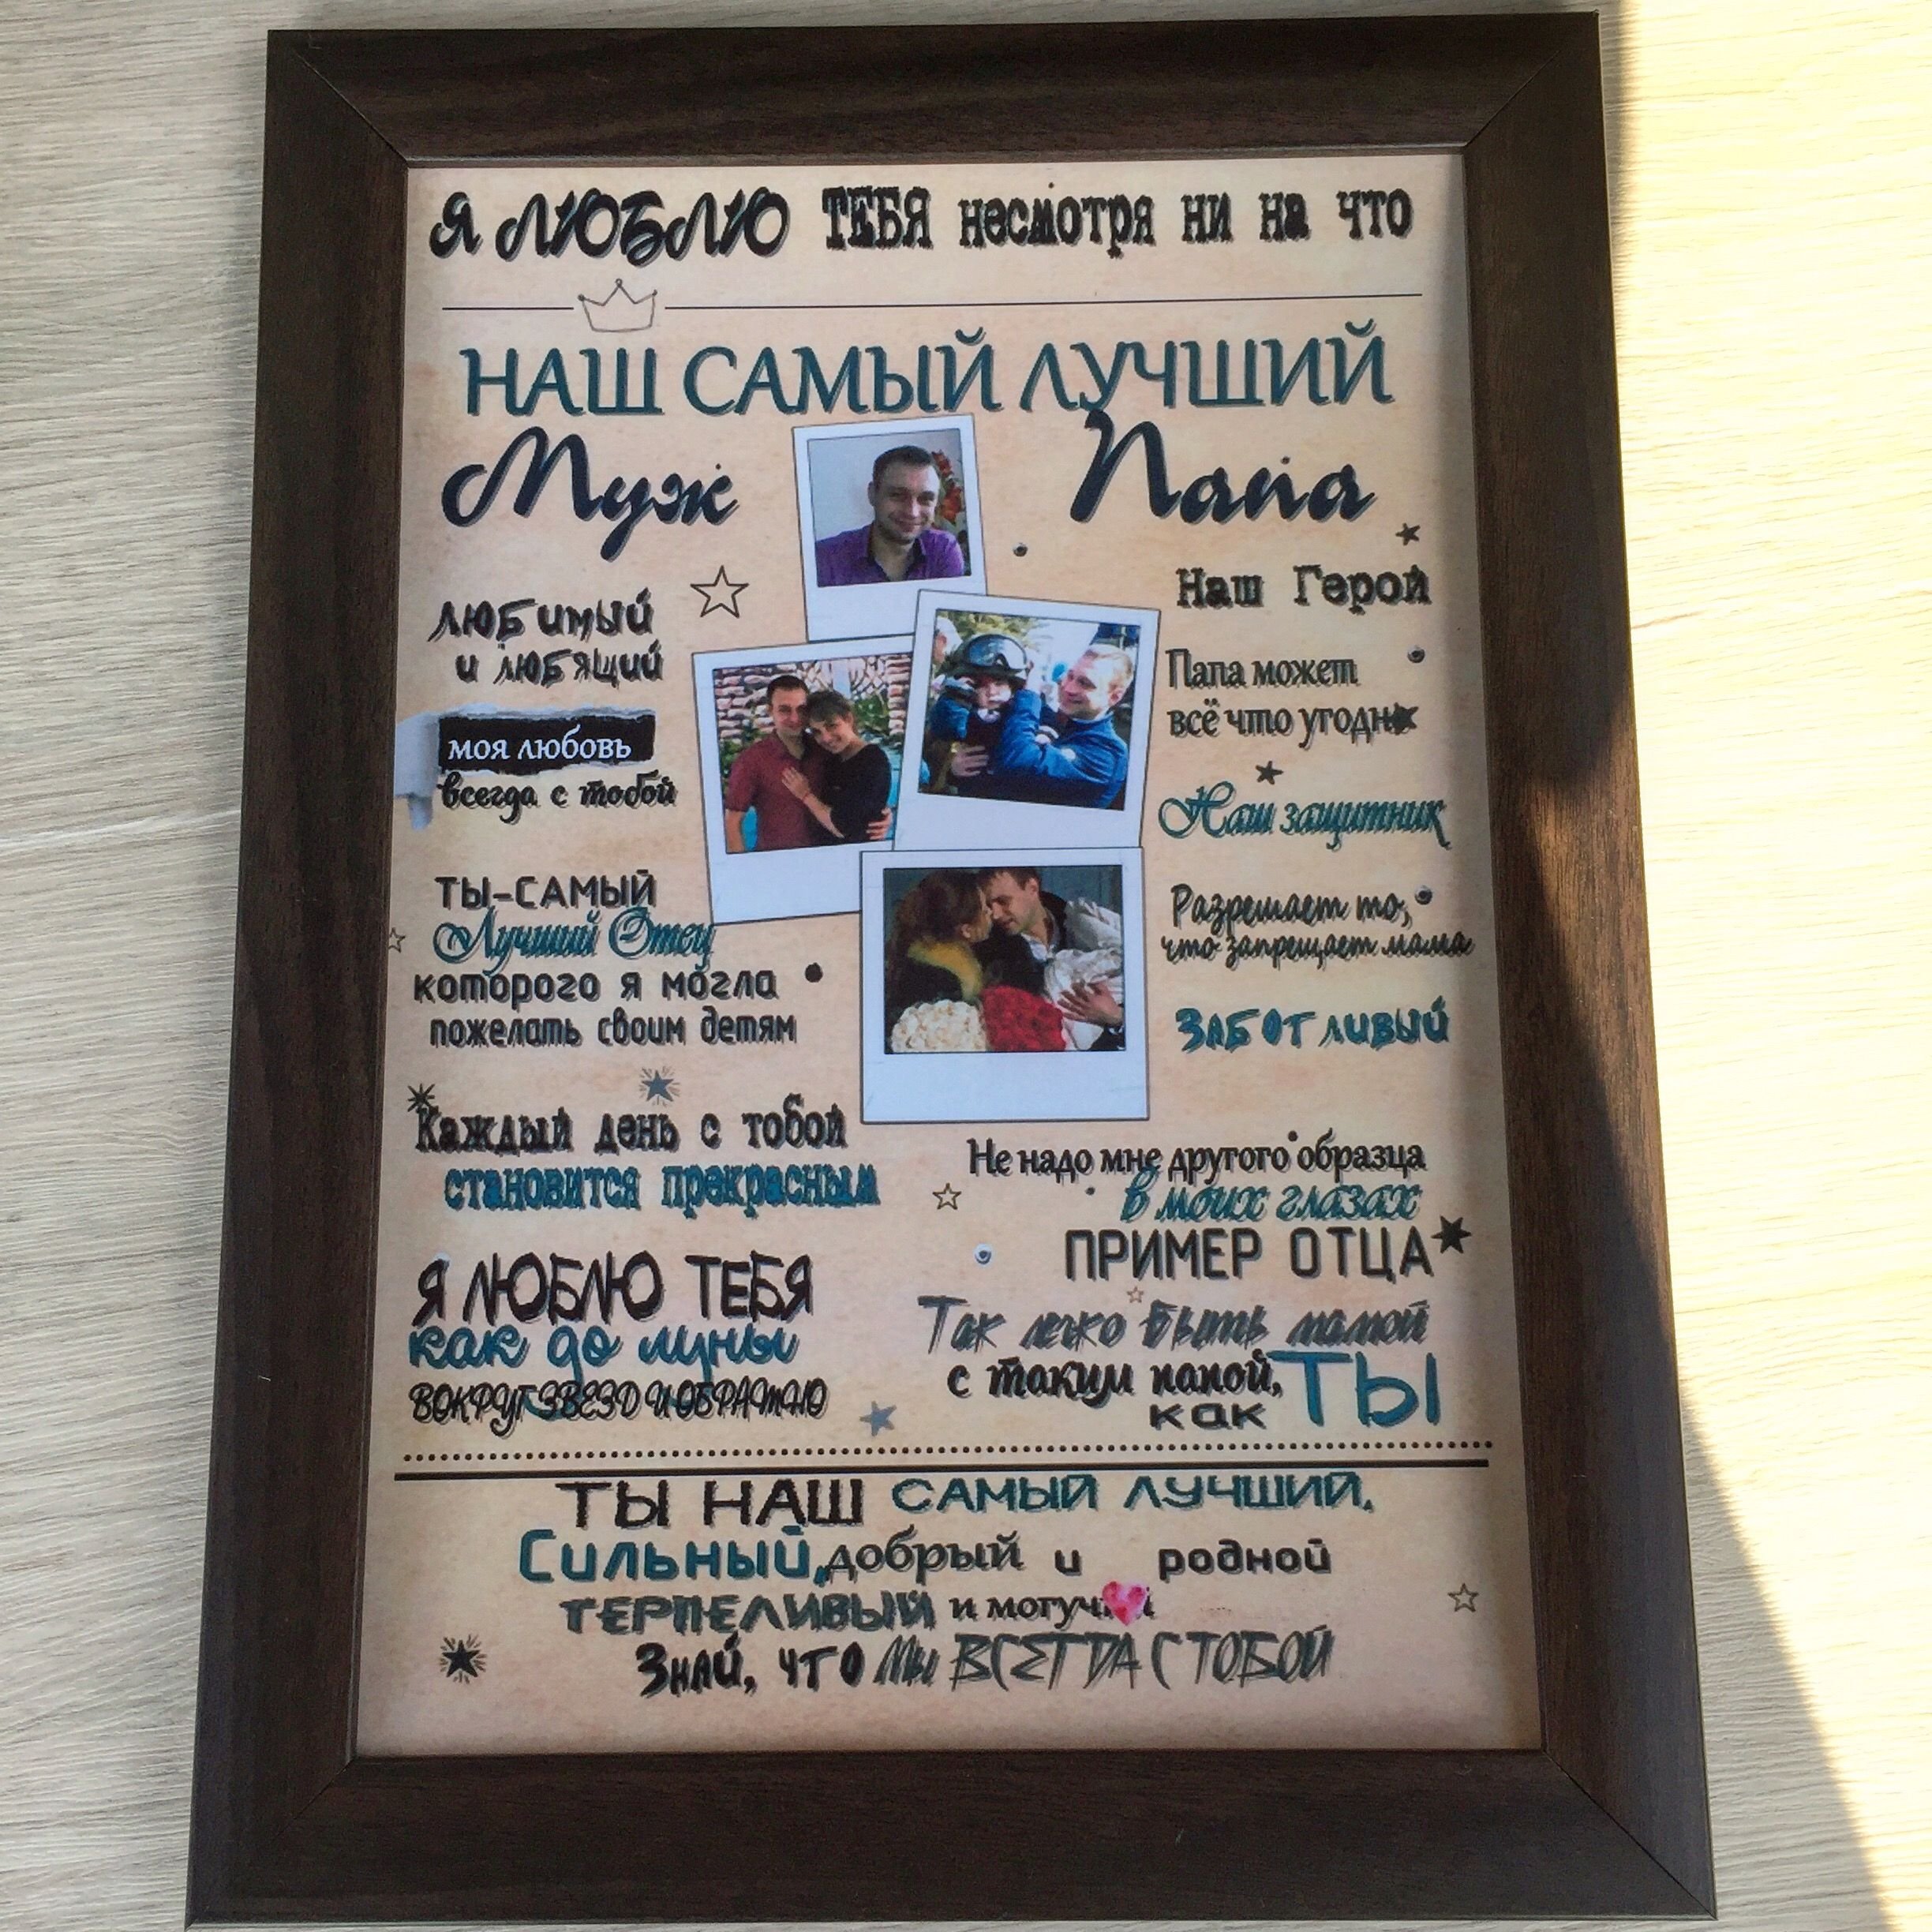 Я ЛЮБЛЮ ТЕБЯ несмотря ни на что
НАШ САМЫЙ ЛУЧШИЙ
Муж
Папа
Любимый
и любящий
моя любовь
всегда с тобой
ТЫ-САМЫЙ
Лучший Отец
которого я могла
пожелать своим детям
Каждый день с тобой
становится прекрасным
Я ЛЮБЛЮ ТЕБЯ
как до луны
ВОКРУГ ЗВЕЗД И ОБРАТНО
Наш Герой
Папа может
всё что угодно
Наш защитник
Разрешает то,
что запрещает мама
ЗАБОТЛИВЫЙ
Не надо мне другого образца
в моих глазах
ПРИМЕР ОТЦА
Так легко быть мамой
с таким папой,
как ТЫ
ТЫ НАШ САМЫЙ ЛУЧШИЙ.
Сильный, добрый и родной
ТЕРПЕЛИВЫЙ и могучий
Знай, что Мы ВСЕГДА С ТОБОЙ